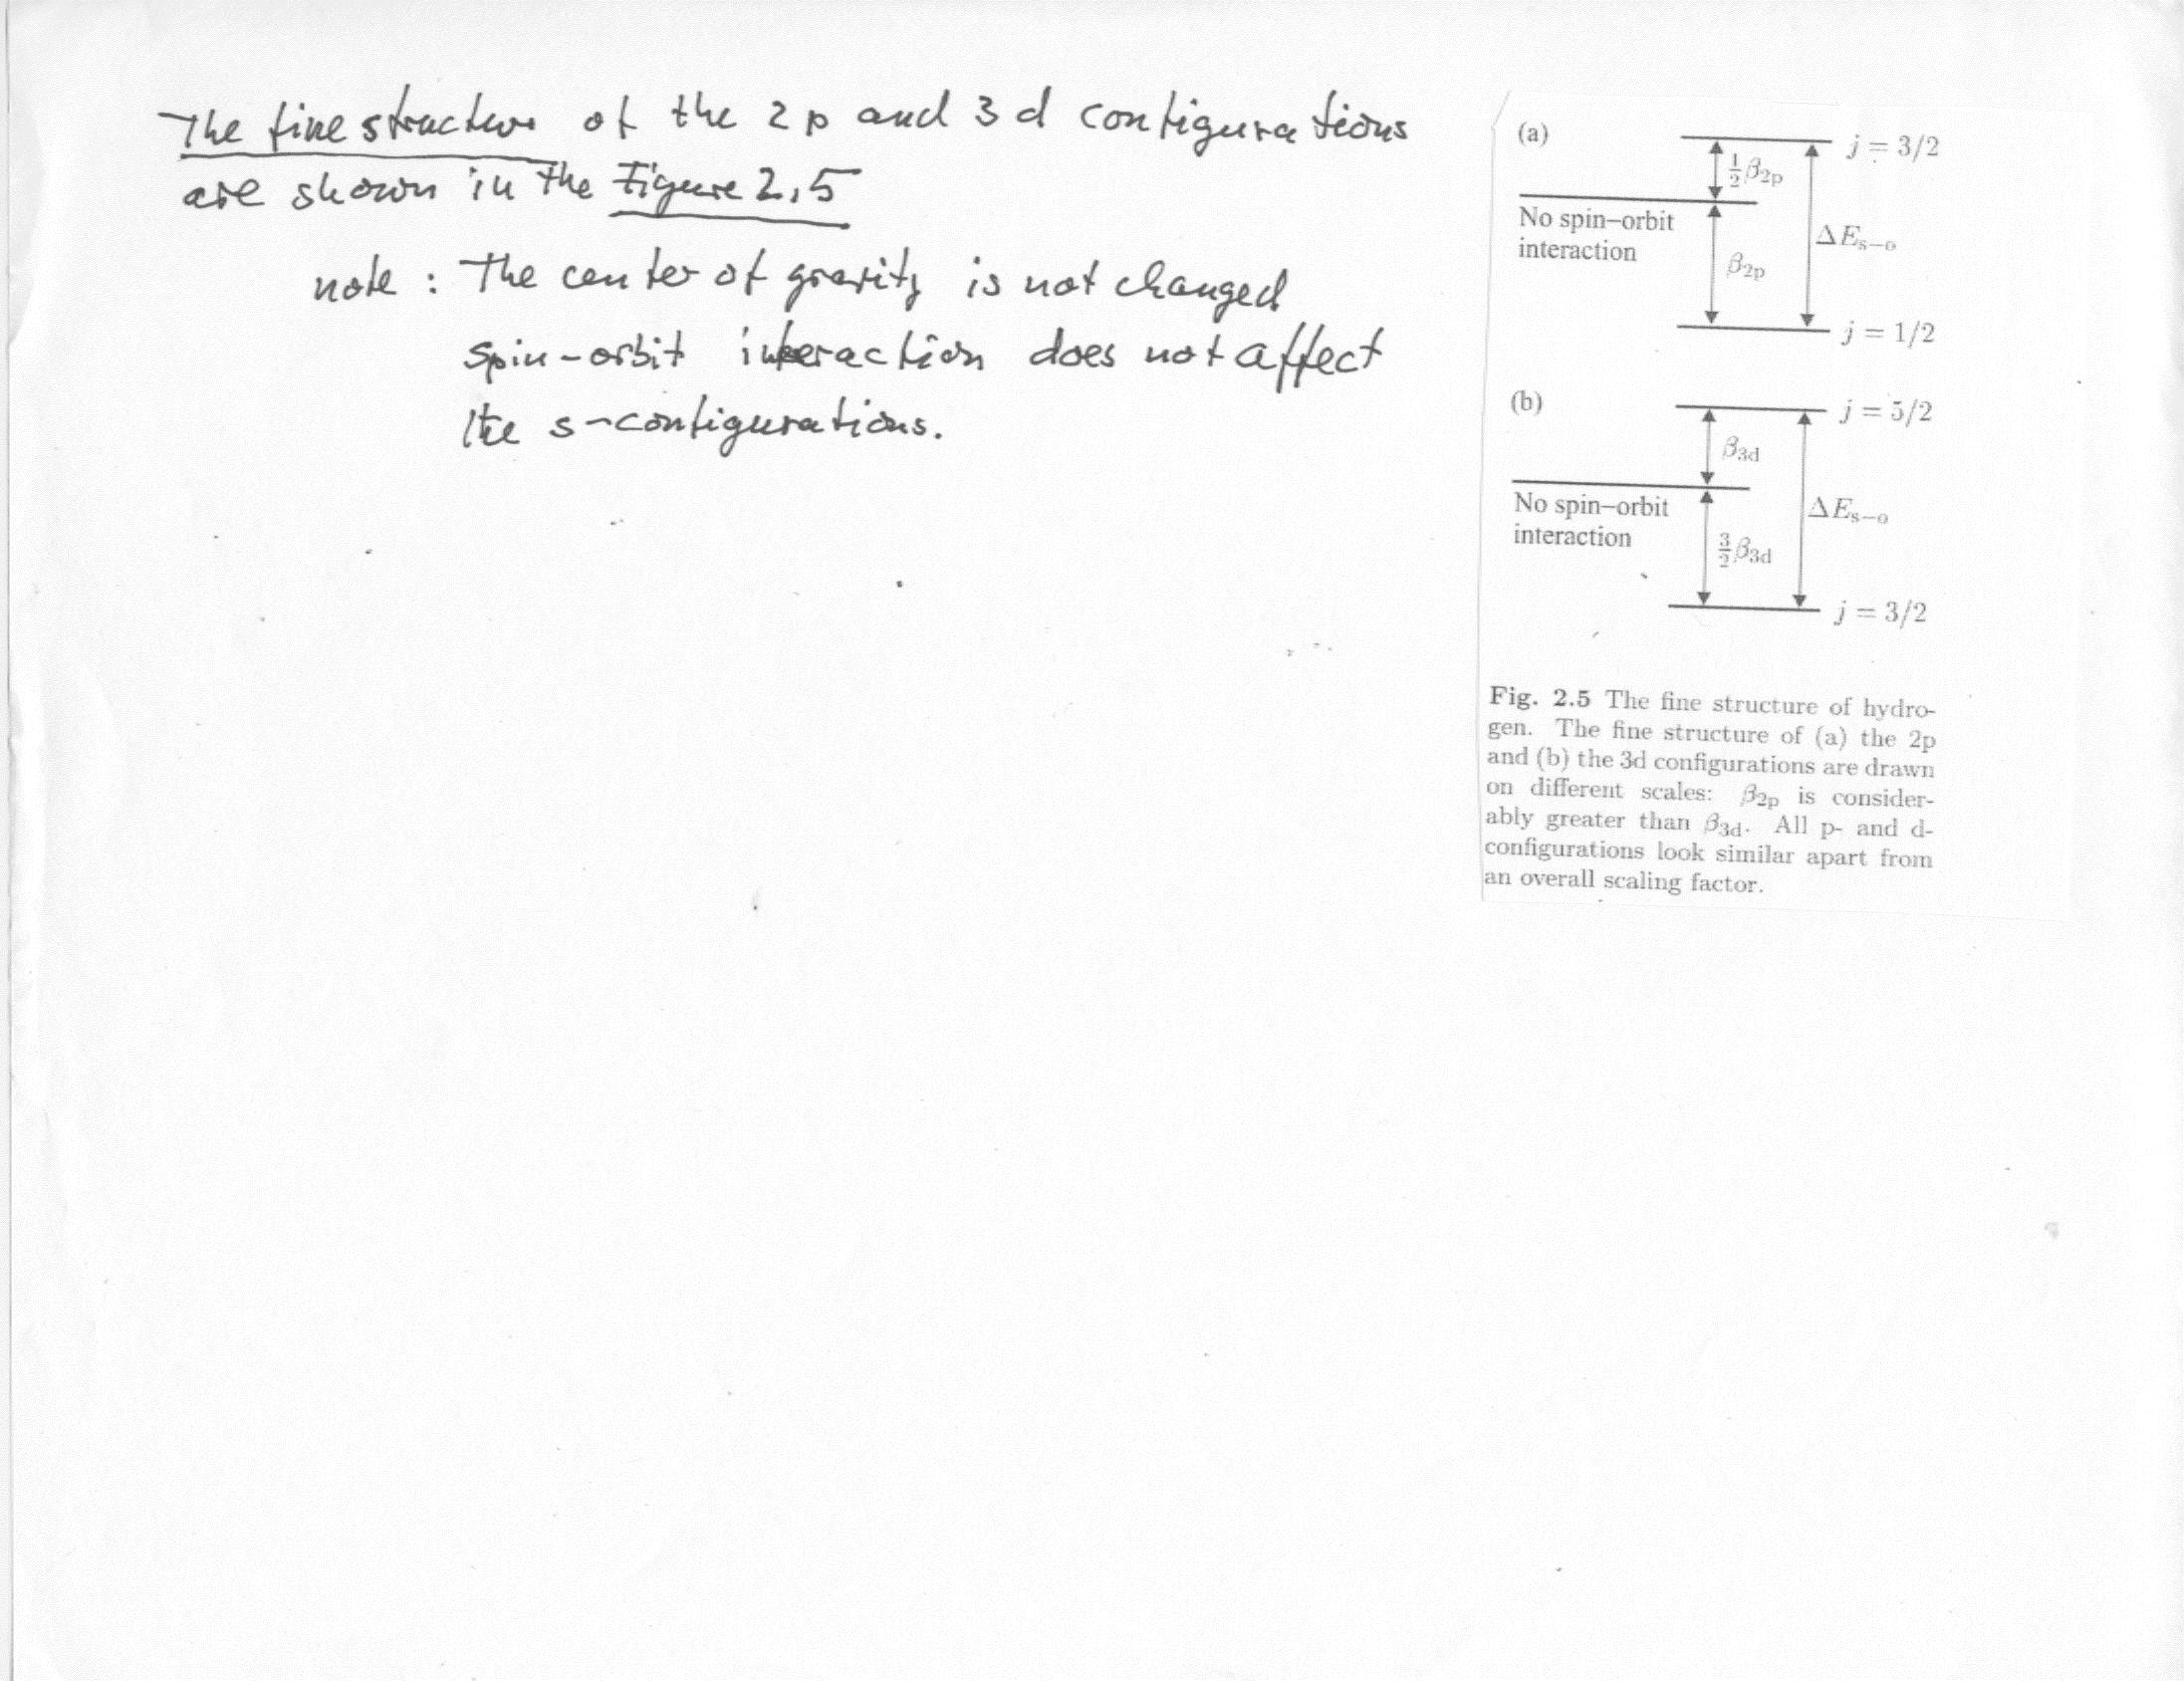 The fine structure of the 2p and 3d configurations
are shown in the Figure 2.5
note : The center of gravity is not changed
spin-orbit interaction does not affect
the s-configurations.
(a)
j = 3/2
½β2p
No spin–orbit
interaction
ΔEs–o
β2p
j = 1/2
(b)
j = 5/2
β3d
No spin–orbit
interaction
ΔEs–o
3/2 β3d
j = 3/2
Fig. 2.5 The fine structure of hydro-
gen. The fine structure of (a) the 2p
and (b) the 3d configurations are drawn
on different scales: β2p is consider-
ably greater than β3d. All p- and d-
configurations look similar apart from
an overall scaling factor.